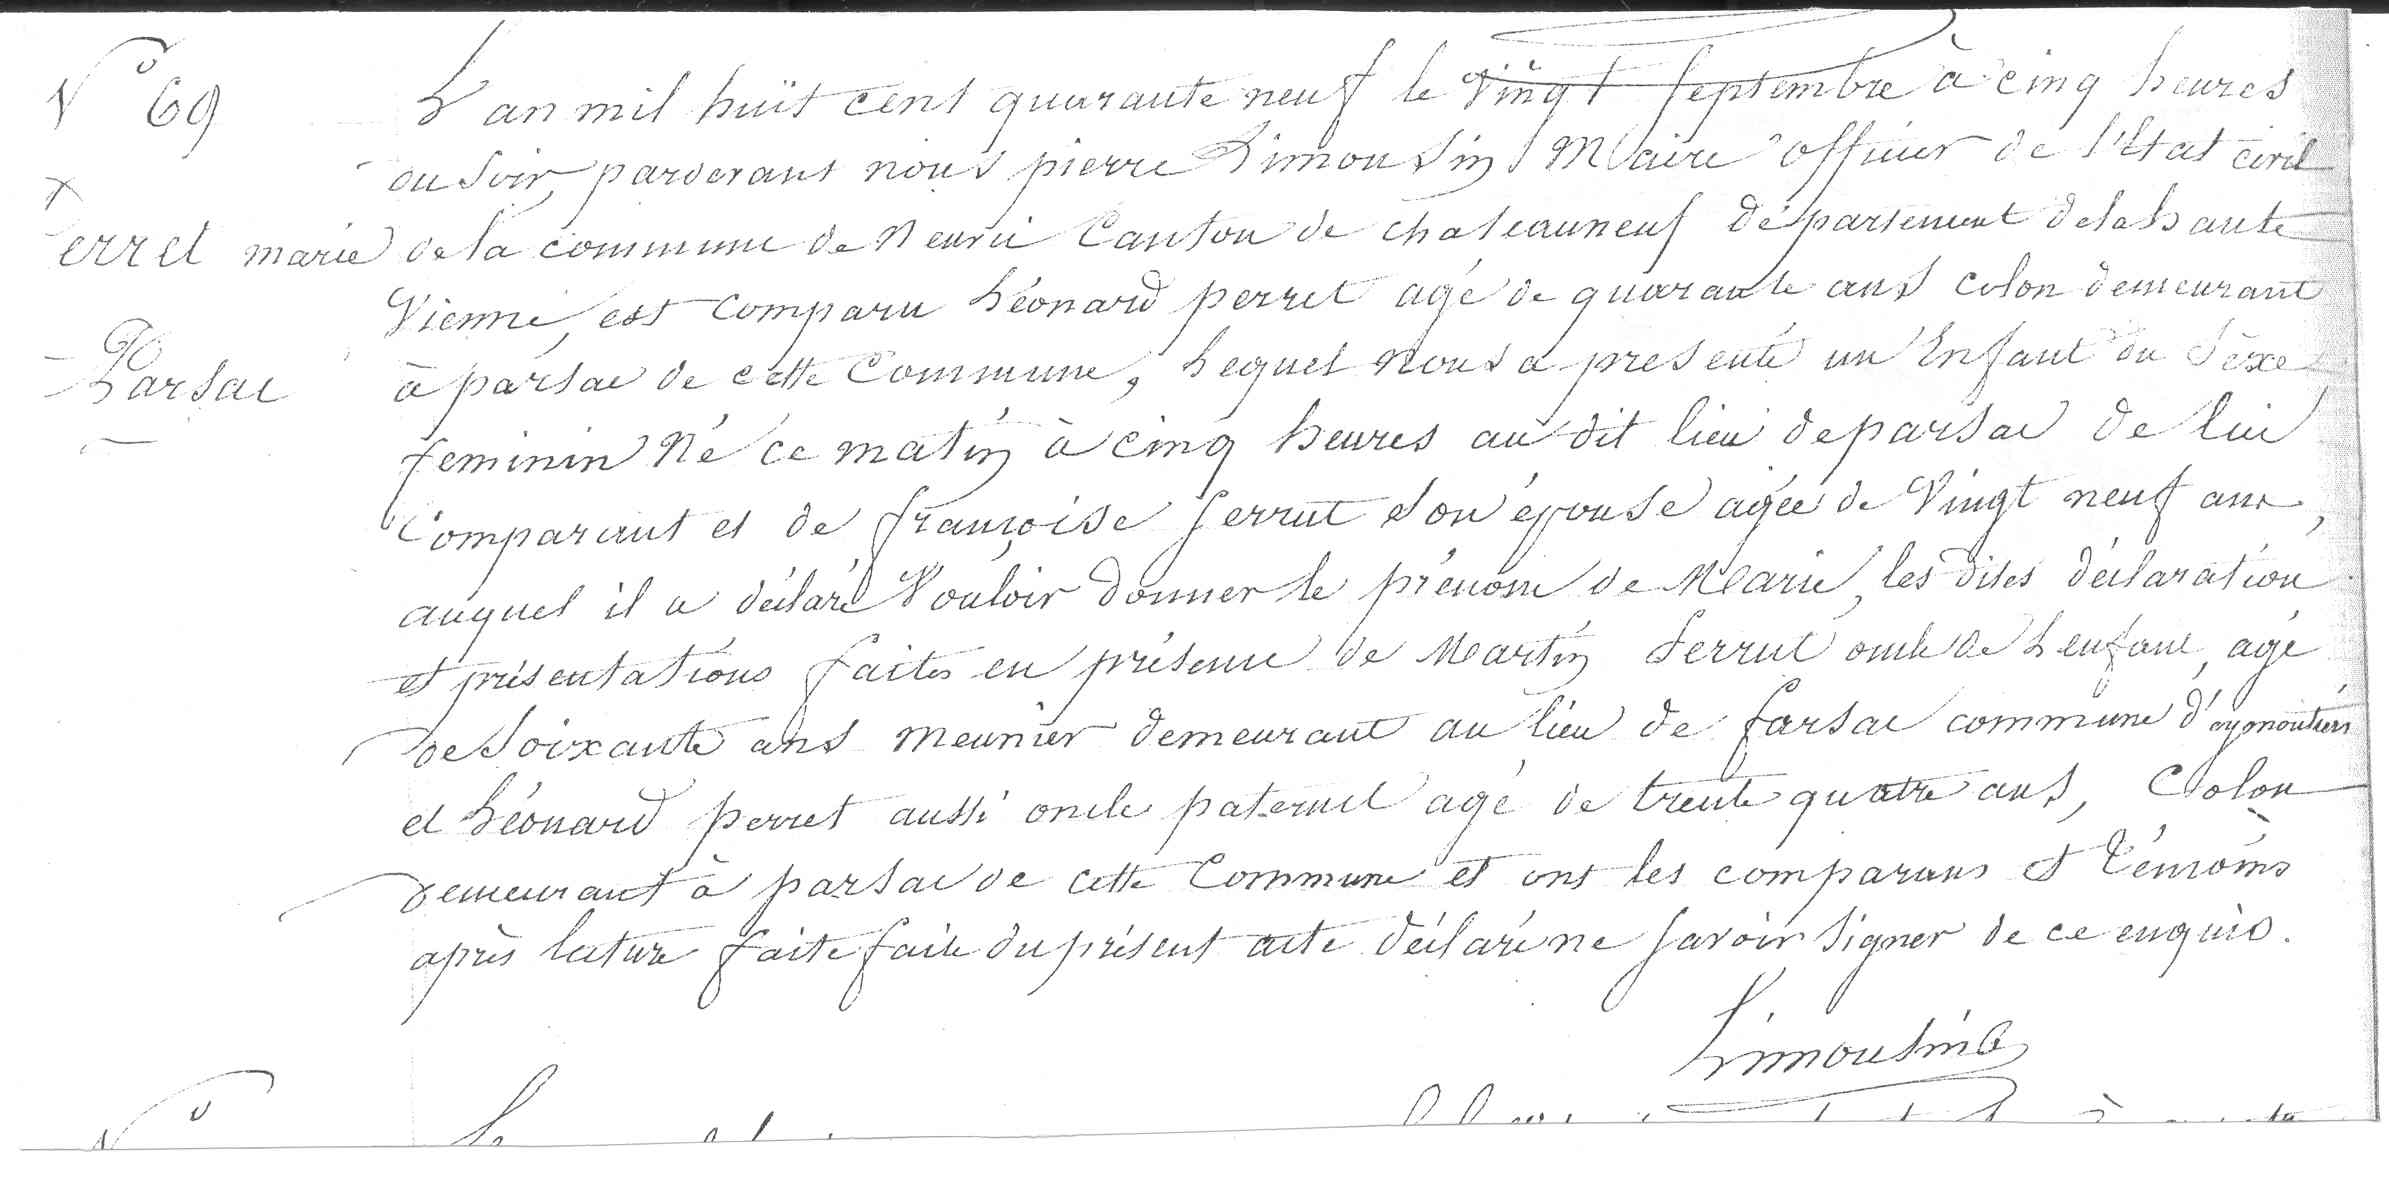 No 69
L'an mil huit cent quarante neuf le Vingt Septembre à cinq heures
du Soir, pardevant nous pierre Limousin Maire officier de l'Etat civil
erret marie
de la commune de Neuvic Canton de chateauneuf département de la haute
Vienne, est comparu Léonard perret agé de quarante ans colon demeurant
Parsac
à parsac de cette Commune, Lequel nous a présenté un Enfant du Sèxe
feminin Né ce matin à cinq heures au dit lieu de parsac de lui
Comparant et de françoise ferrut son épouse agée de Vingt neuf ans,
auquel il a déclaré Vouloir donner le prénom de Marie, les dites déclaration
et présentations faites en présence de Martin ferrut oncle de L'enfant, agé
de Soixante ans meunier demeurant au lieu de farsac commune d'aymoutiers
et Léonard perret aussi oncle paternel agé de trente quatre ans, Colon
demeurant à parsac de cette Commune et ont les comparans et témoins
après lecture faite faite du présent acte déclaré ne Savoir Signer de ce enquis.
Limousin